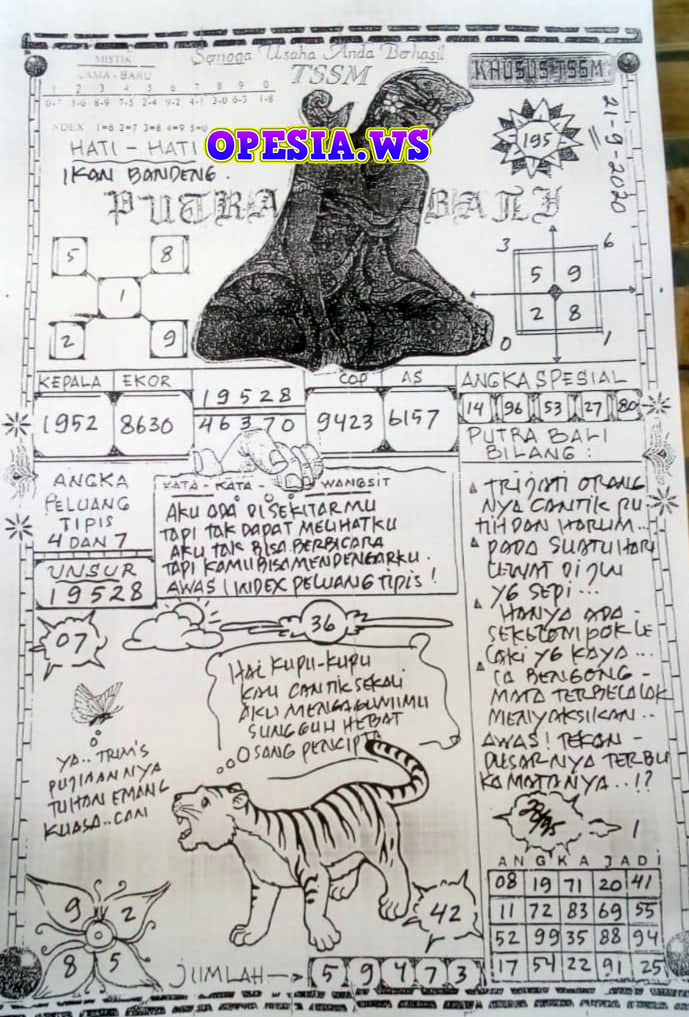 Semoga Usaha Anda Berhasil
TSSM
KHUSUS TSSM
MISTIK
LAMA - BARU
1 2 3 4 5 6 7 8 9 0
INDEX 1=6 2=7 3=8 4=9 5=0
HATI - HATI
IKAN BANDENG.
OPESIA.WS
195
21-9-2020
PUTRA BALI
5 8
1
2 9
3 6
5 9
2 8
0 1
KEPALA EKOR
1952 8630
19528
46370
COP AS
9423 6157
ANGKA SPESIAL
14 96 53 27 80
ANGKA
PELUANG
TIPIS
4 DAN 7
UNSUR
19528
KATA - KATA - WANGSIT
AKU ADA DISEKITARMU
TAPI TAK DAPAT MELIHATKU
AKU TAK BISA BERBICARA
TAPI KAMU BISA MENDENGARKU.
AWAS 1 INDEX PELUANG TIPIS!
PUTRA BALI
BILANG:
TRIJATI ORANG
NYA CANTIK PU
TIH DAN HARUM...
PADA SUATU HARI
LEWAT DI
YG SEPI...
HANYA ADA -
SEKELOMPOK LE
LAKI YG KAYA...
IA BENGONG -
MATA TERBELALAK
MENYAKSIKAN..
AWAS! TEKAN -
PUSARNYA TERBU
KA MATANYA..!?
07
36
HAI KUPU-KUPU
KAU CANTIK SEKALI
AKU MENGAGUMIMU
SUNGGUH HEBAT
SANG PENCIPTA
YA.. TRIM'S
PUJIAANNYA
TUHAN EMANG
KUASA..CAN
1
ANGKA JADI
08 19 71 20 41
11 72 83 69 55
52 99 35 88 94
17 54 22 91 25
42
9 2
8 5
JUMLAH
5 9 4 7 3